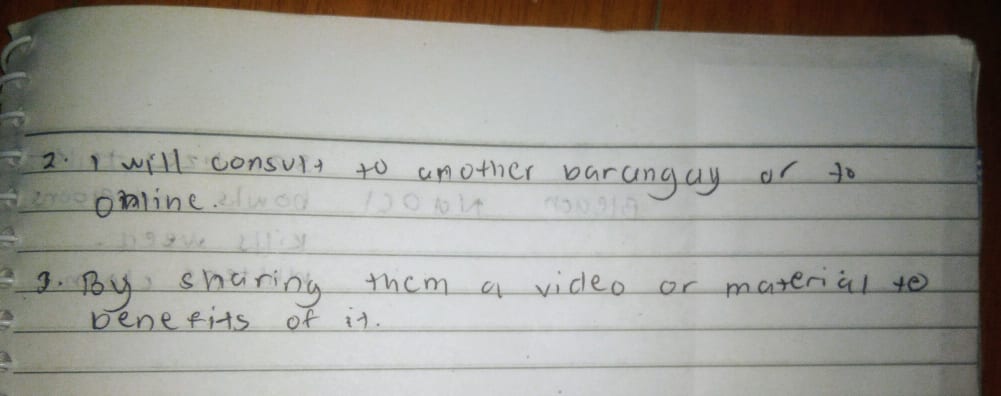 2. I will consult to another barangay or to
online.
3. By sharing them a video or material to
benefits of it.